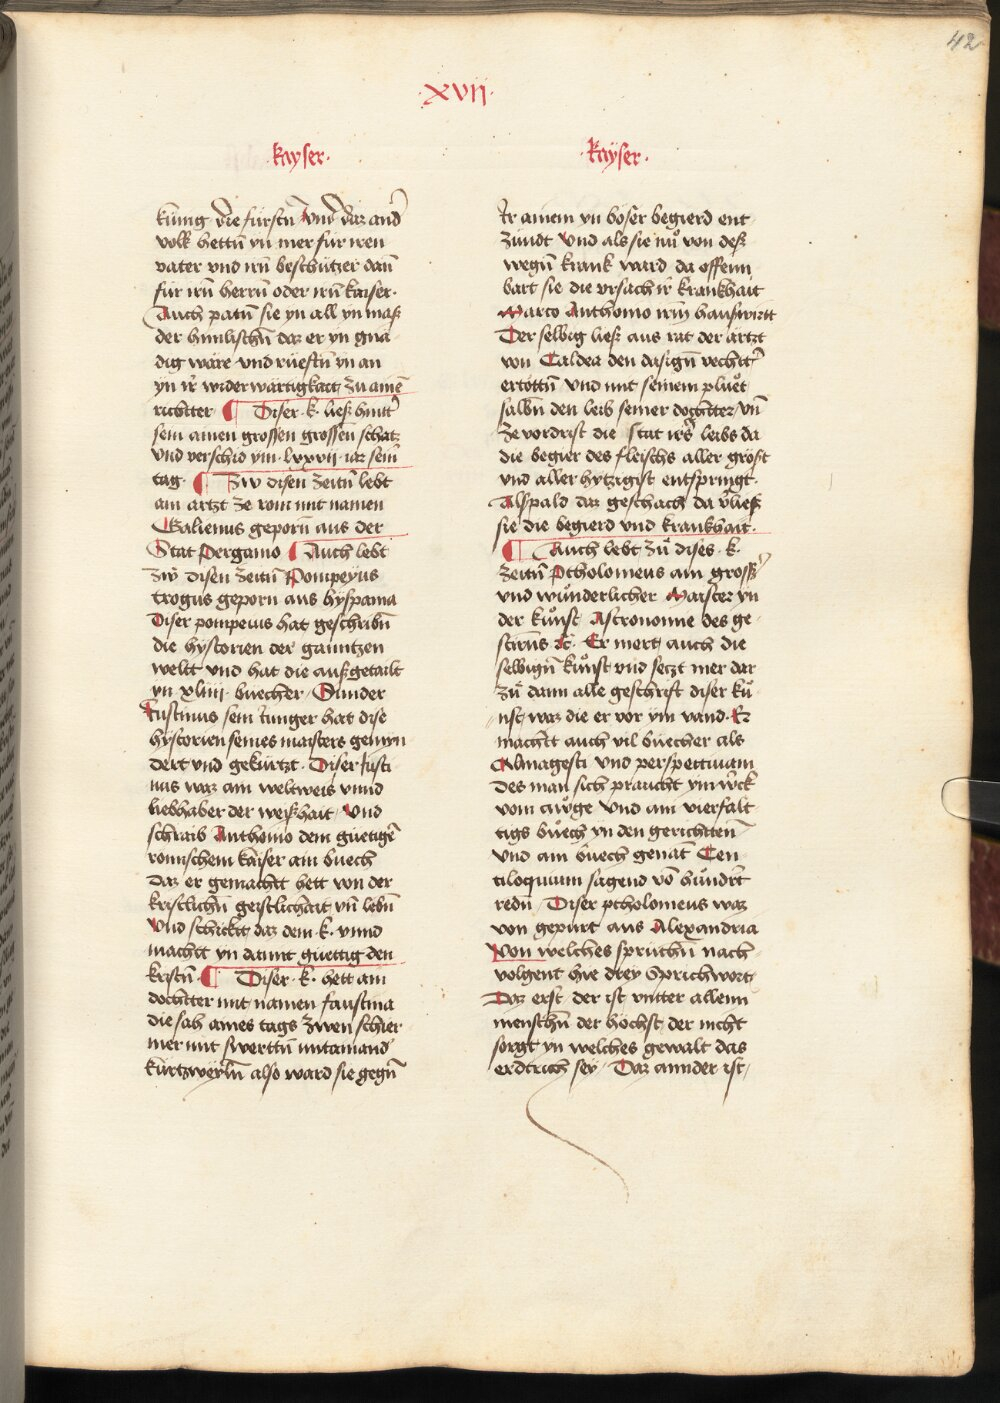 42
·xvij·
·kayser·
kúnig die fürstn̄ vnd daz and̕
volk hettn̄ yn mer für iren
vater vnd irn̄ beschützer dañ
für irn̄ herrn̄ oder irn̄ kaiser·
Auch patn̄ sie yn all yn maß
der himlischn̄ daz er yn gnä
dig wäre vnd rúestn̄ yn an
yn ir̄ widerwärtigkait zu aine̅
richtter ¶ Diser·k· ließ hintt̕
sein ainen grossen grossen schatz
vnd verschid ym·lxxvii·iar sein̄
tag· ¶ Zw disen zeitn̄ lebt
ain artzt ze rom mit namen
Galienus geporn̄ aus der
Stat Pergamo ¶ Auch lebt
zw disen zeitn̄ Pompeyus
trogus geporn aus hyspania
Diser pompeius hat geschribn̄
die hystorien der ganntzen
weltt vnd hat die außgetailt
yn xliiii· buecher / Sunder
Justinus sein iunger hat dise
hystorien seines maisters gemyn
dert vnd gekürtzt· Diser Justi
nus waz ain weltweis vnnd
liebhaber der weißhait / Vnd
schraib Anthonio dem güetige̅
romischem kaiser ain buech
Daz er gemachtt hett von der
kristlichn̄ geistlichait vn̄ lebn̄
Vnd schicktt daz dem·k· vnnd
machtt yn damit güettig den
kristn̄· ¶ Diser·k· hett ain
dochtter mit namen faustina
die sah aines tags zwen schier
mer mit swerttn̄ mitainand̕
kürtzweyln̄ also ward sie gegn̄
·kayser·
Jr ainem yn böser begierd ent
zündt Vnd als sie nů von deß
wegn̄ krank ward da offenn
bart sie die vrsach ir̄ krankhait
Marco Anthonio irm haußwirtt
Der selbig ließ aus rat der ärtzt
von Caldea den dasign̄ vechtt̕
ertöttn̄ vnd mit seinem plůet
salbn̄ den leib seiner dochtter / vn̄
ze vordrist die stat irs̄ leibs da
die begier des fleischs aller gröst
vnd aller hytzigist entspringt·
Alspald daz geschach da v̕ließ
sie die begierd vnd krankhait·
¶ Auch lebt zů dises·k·
zeitn̄ Ptholomeus ain gross̕
vnd wůnderlicher Maister yn
der kůnst Astronomie des ge
stirns ꝛc· Er mert auch die
selbign̄ kůnst vnd setzt mer dar
zů dann alle geschrift diser ků
nst / waz die er vor ym vand· Er
machtt auch vil büecher als
Almagesti vnd perspectiuam
Des man sich praucht ym w̕ck
vom awge Vnd ain vierfält
tigs büech yn den gerichtten̄
Vnd ain büech genāt Cen
tiloquium sagend vō hůndr̄t
redn̄ / Diser ptholomeus waz
von gepurt aus Alexandria
Von welches sprüchn̄ nach
volgent hie drey Sprichwort
Daz erst der ist vntter allenn
menschn̄ der höchst der nicht
sorgt yn welches gewalt das
erdtrich sey / Daz annder ist /